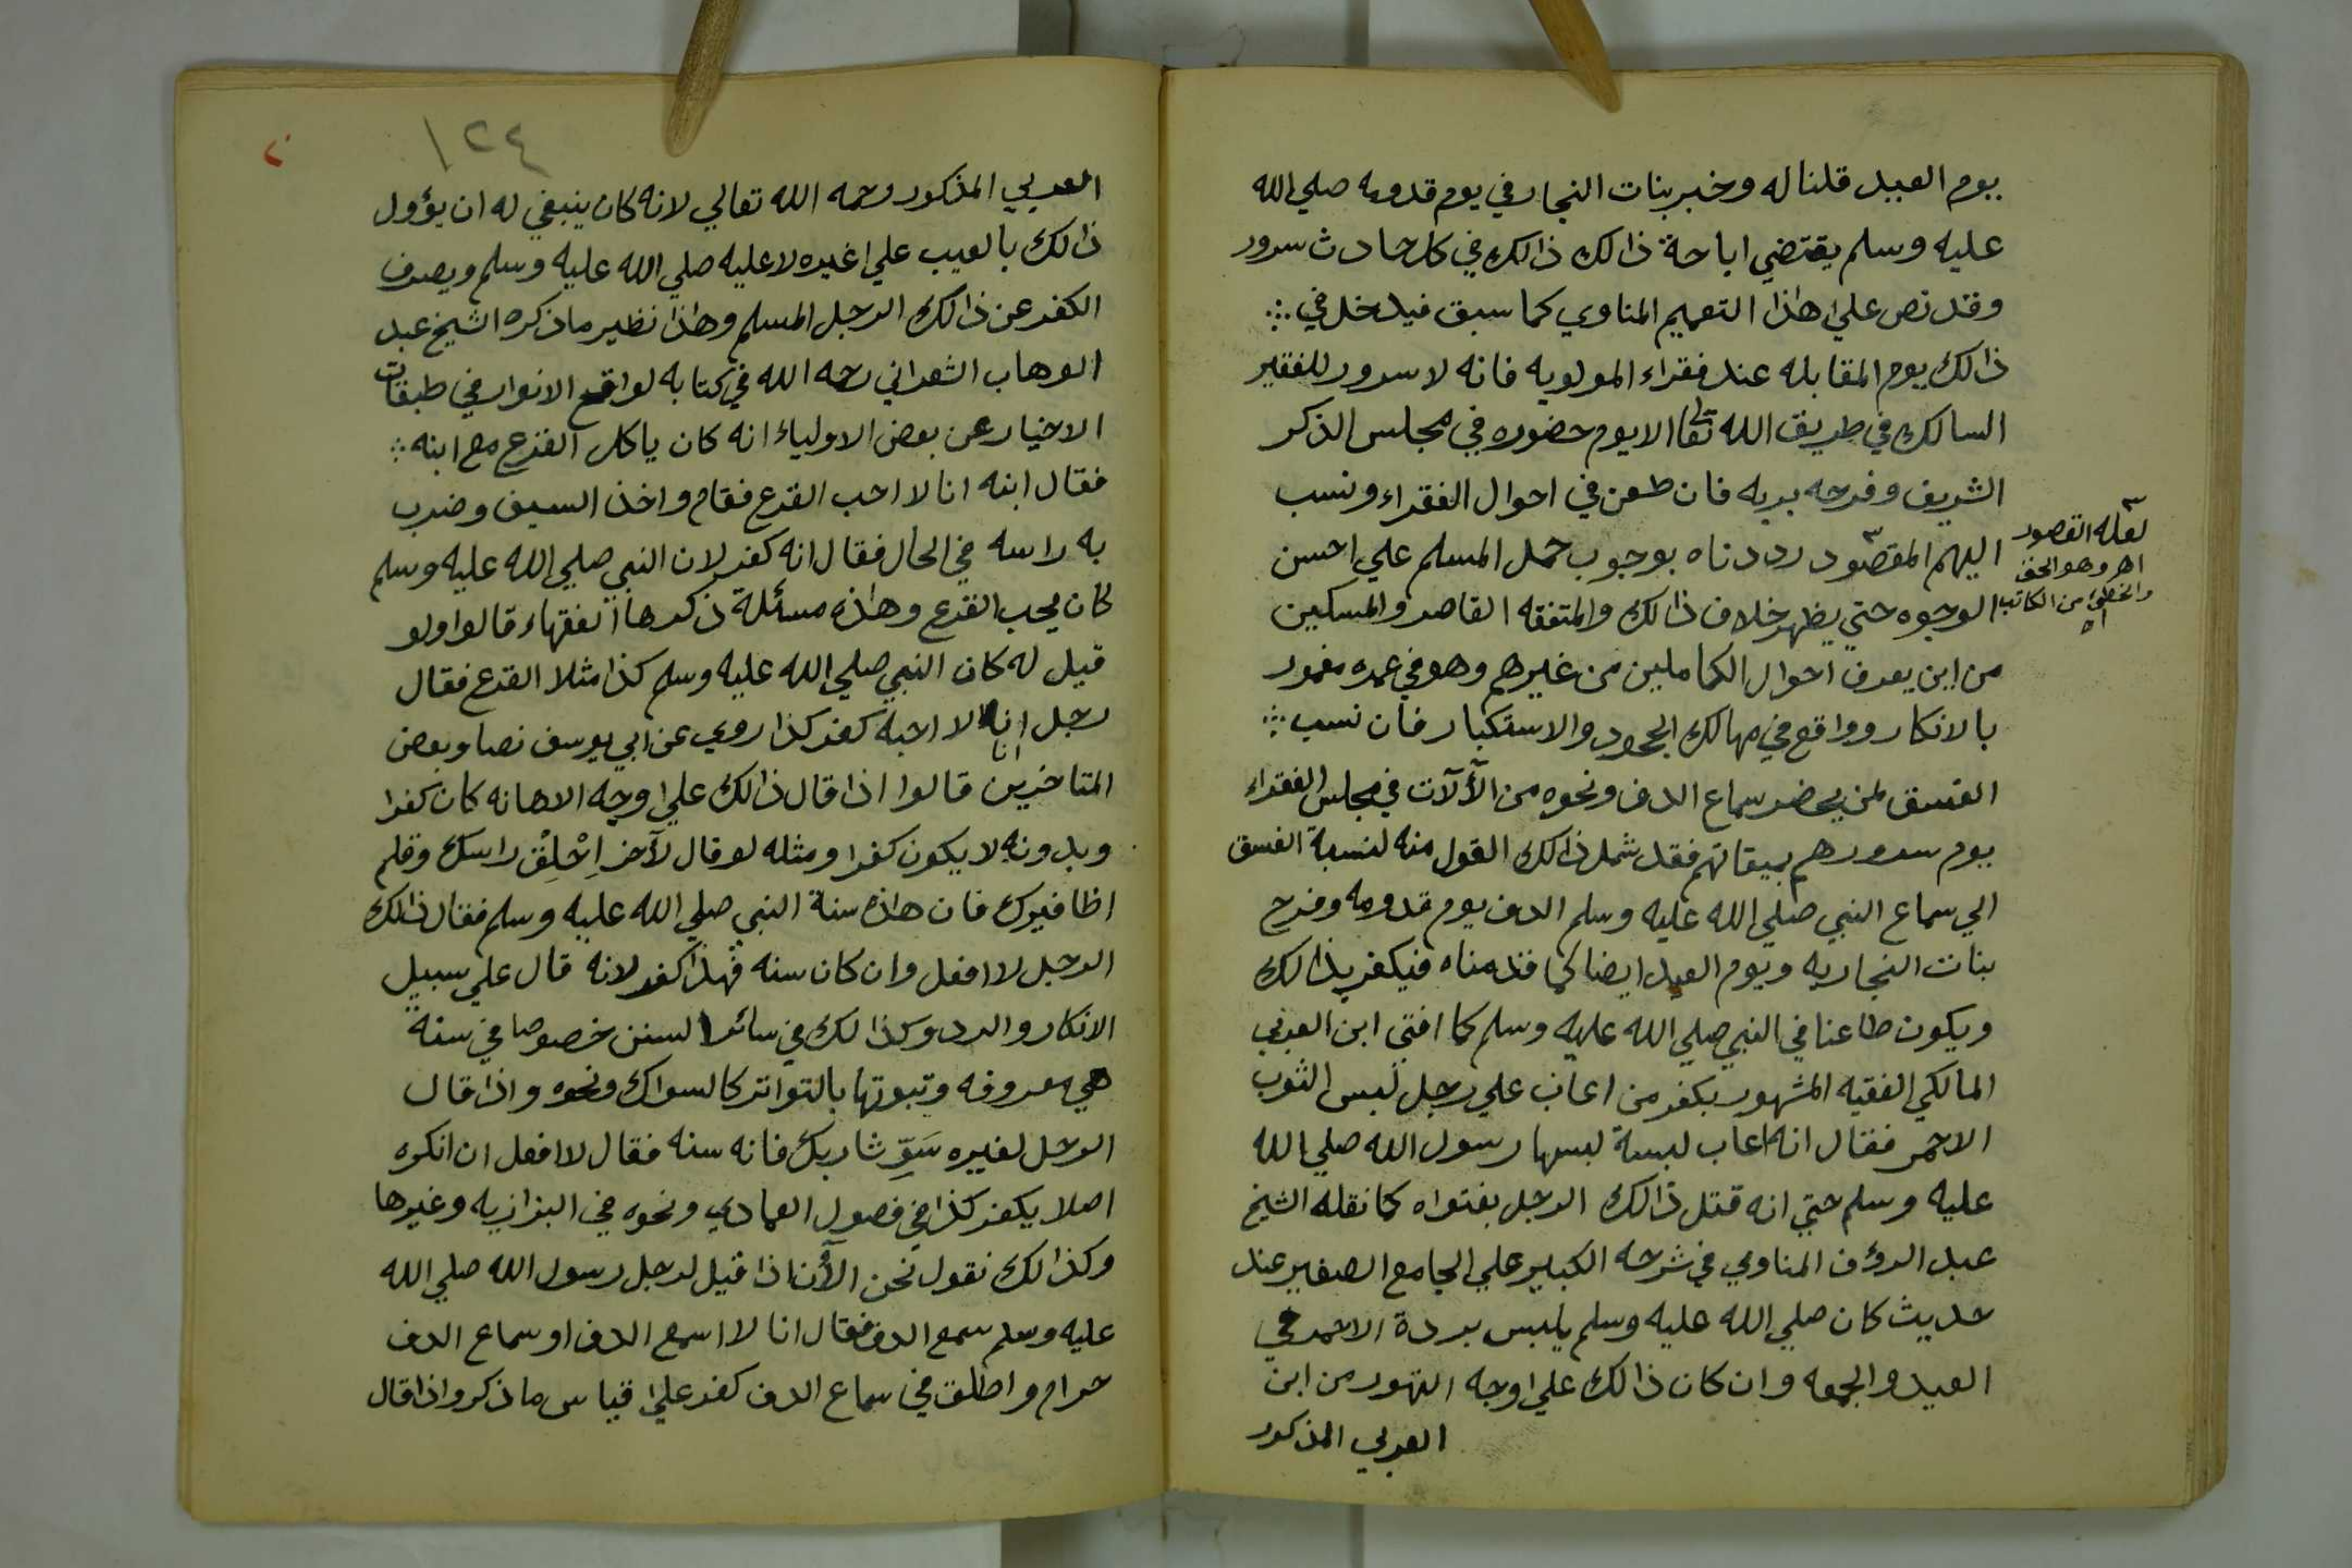 يوم العيد قلنا له وخبر بنات النجار في يوم قدومه صلي الله
عليه وسلم يقتضي اباحة ذالك ذالك في كل حادث سرور
وقد نص علي هذا التعميم المناوي كما سبق فيدخل في
ذالك يوم المقابله عند فقراء المولويه فانه لا سرور للفقير
السالك في طريق الله تعالى الا يوم حضوره في مجلس الذكر
الشريف وفرحه بربه فان طعن في احوال الفقراء ونسب
اليهم المقصود رددناه بوجوب حمل المسلم علي احسن
لعله القصور
اهـ وهو الحق
والخطاء من الكاتب
اه
الوجوه حتي يظهر خلاف ذالك والمتفقه القاصر والمسكين
من اين يعرف احوال الكاملين من غيرهم وهو في عمره مغمور
بالانكار وواقع في مهالك الجحود والاستكبار فان نسب
الفسق لمن يحضر سماع الدف ونحوه من الآلآت في مجلس الفقراء
يوم سرورهم بميقاتهم فقد شمل ذالك القول منه لنسبة الفسق
الي سماع النبي صلي الله عليه وسلم الدف يوم قدومه وفرح
بنات النجار به ويوم العيد ايضا كما قدمناه فيكفر بذالك
ويكون طاعنا في النبي صلي الله عليه وسلم كما افتي ابن العربي
المالكي الفقيه المشهور بكفر من اعاب علي رجل لبس الثوب
الاحمر فقال انه اعاب لبسة لبسها رسول الله صلي الله
عليه وسلم حتي انه قتل ذالك الرجل بفتواه كما نقله الشيخ
عبد الرؤف المناوي في شرحه الكبير علي الجامع الصغير عند
حديث كان صلي الله عليه وسلم يلبس بردة الاحمر في
العيد والجمعه وان كان ذالك علي وجه التهور من ابن
العربي المذكور
١٢٤
العربي المذكور رحمه الله تعالي لانه كان ينبغي له ان يؤول
ذالك بالعيب علي غيره لا عليه صلي الله عليه وسلم ويصرف
الكفر عن ذالك الرجل المسلم وهذا نظير ما ذكره الشيخ عبد
الوهاب الشعراني رحمه الله في كتابه لواقح الانوار في طبقات
الاخيار عن بعض الاولياء انه كان ياكل القرع مع ابنه
فقال ابنه انا لا احب القرع فقام واخذ السيف وضرب
به راسه في الحال فقال انه كفر لان النبي صلي الله عليه وسلم
كان يحب القرع وهذه مسئلة ذكرها الفقهاء قالوا ولو
قيل له كان النبي صلي الله عليه وسلم كذا مثلا القرع فقال
رجل انا لا احبه كفر كذا روي عن ابي يوسف نصا وبعض
المتاخرين قالوا اذا قال ذالك علي وجه الاهانه كان كفرا
وبدونه لا يكون كفرا ومثله لو قال لآخر اِحْلِقْ راسك وقلم
اظافيرك فان هاذه سنة النبي صلي الله عليه وسلم فقال ذالك
الرجل لا افعل وان كان سنه فهذا كفر لانه قال علي سبيل
الانكار والرد وكذالك في سائر السنن خصوصا في سنة
هي معروفه وثبوتها بالتواتر كالسواك ونحوه واذا قال
الرجل لغيره سَوِّ شاربك فانه سنه فقال لا افعل ان انكره
اصلا يكفر كذا في فصول العمادي ونحوه في البزازيه وغيرها
وكذالك نقول نحن الآن اذا قيل لرجل رسول الله صلي الله
عليه وسلم سمع الدف فقال انا لا اسمع الدف او سماع الدف
حرام واطلق في سماع الدف كفر علي قياس ما ذكر واذا قال